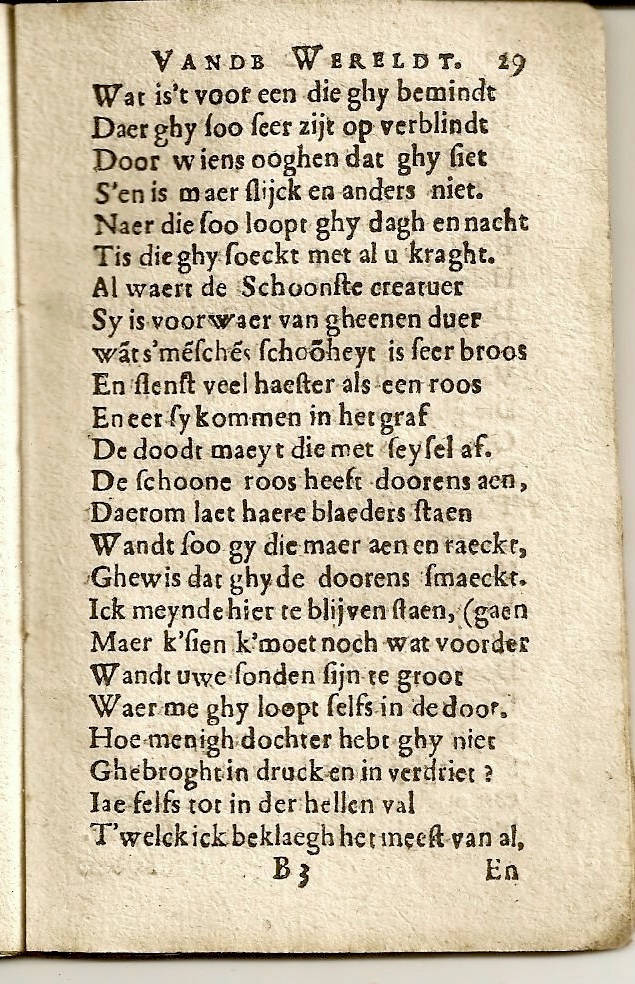 VANDB WERELDT. 29
Wat is't voor een die ghy bemindt
Daer ghy ſoo ſeer zijt op verblindt
Door wiens ooghen dat ghy ſiet
S'en is maer ſlijck en anders niet.
Naer die ſoo loopt ghy dagh en nacht
Tis die ghy ſoeckt met al u kraght.
Al waert de Schoonſte creatuer
Sy is voorwaer van gheenen duer
wāt s'mēſchēs ſchoōheyt is ſeer broos
En ſlenſt veel haeſter als een roos
En eer ſy kommen in het graf
De doodt maeyt die met ſeyſel af.
De ſchoone roos heeft doorens aen,
Daerom laet haere blaeders ſtaen
Wandt ſoo gy die maer aen en raeckt,
Ghewis dat ghy de doorens ſmaeckt.
Ick meynde hier te blijven ſtaen, (gaen
Maer k'ſien k'moet noch wat voorder
Wandt uwe ſonden ſijn te groot
Waer me ghy loopt ſelfs in de doot.
Hoe menigh dochter hebt ghy niet
Ghebroght in druck en in verdriet ?
Iae ſelfs tot in der hellen val
T'welck ick beklaegh het meeſt van al,
B3 En